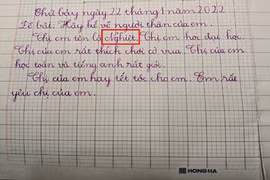 Thứ bảy ngày 22 tháng 1 năm 2022
Đề bài: Hãy kể về người thân của em.
Chị em tên là Nghiệt. Chị em học đại học.
Chị của em rất thích chơi cờ vua. Chị của em
học toán và tiếng anh rất giỏi.
Chị của em hay tết tóc cho em. Em rất
yêu chị của em.
HONG HA